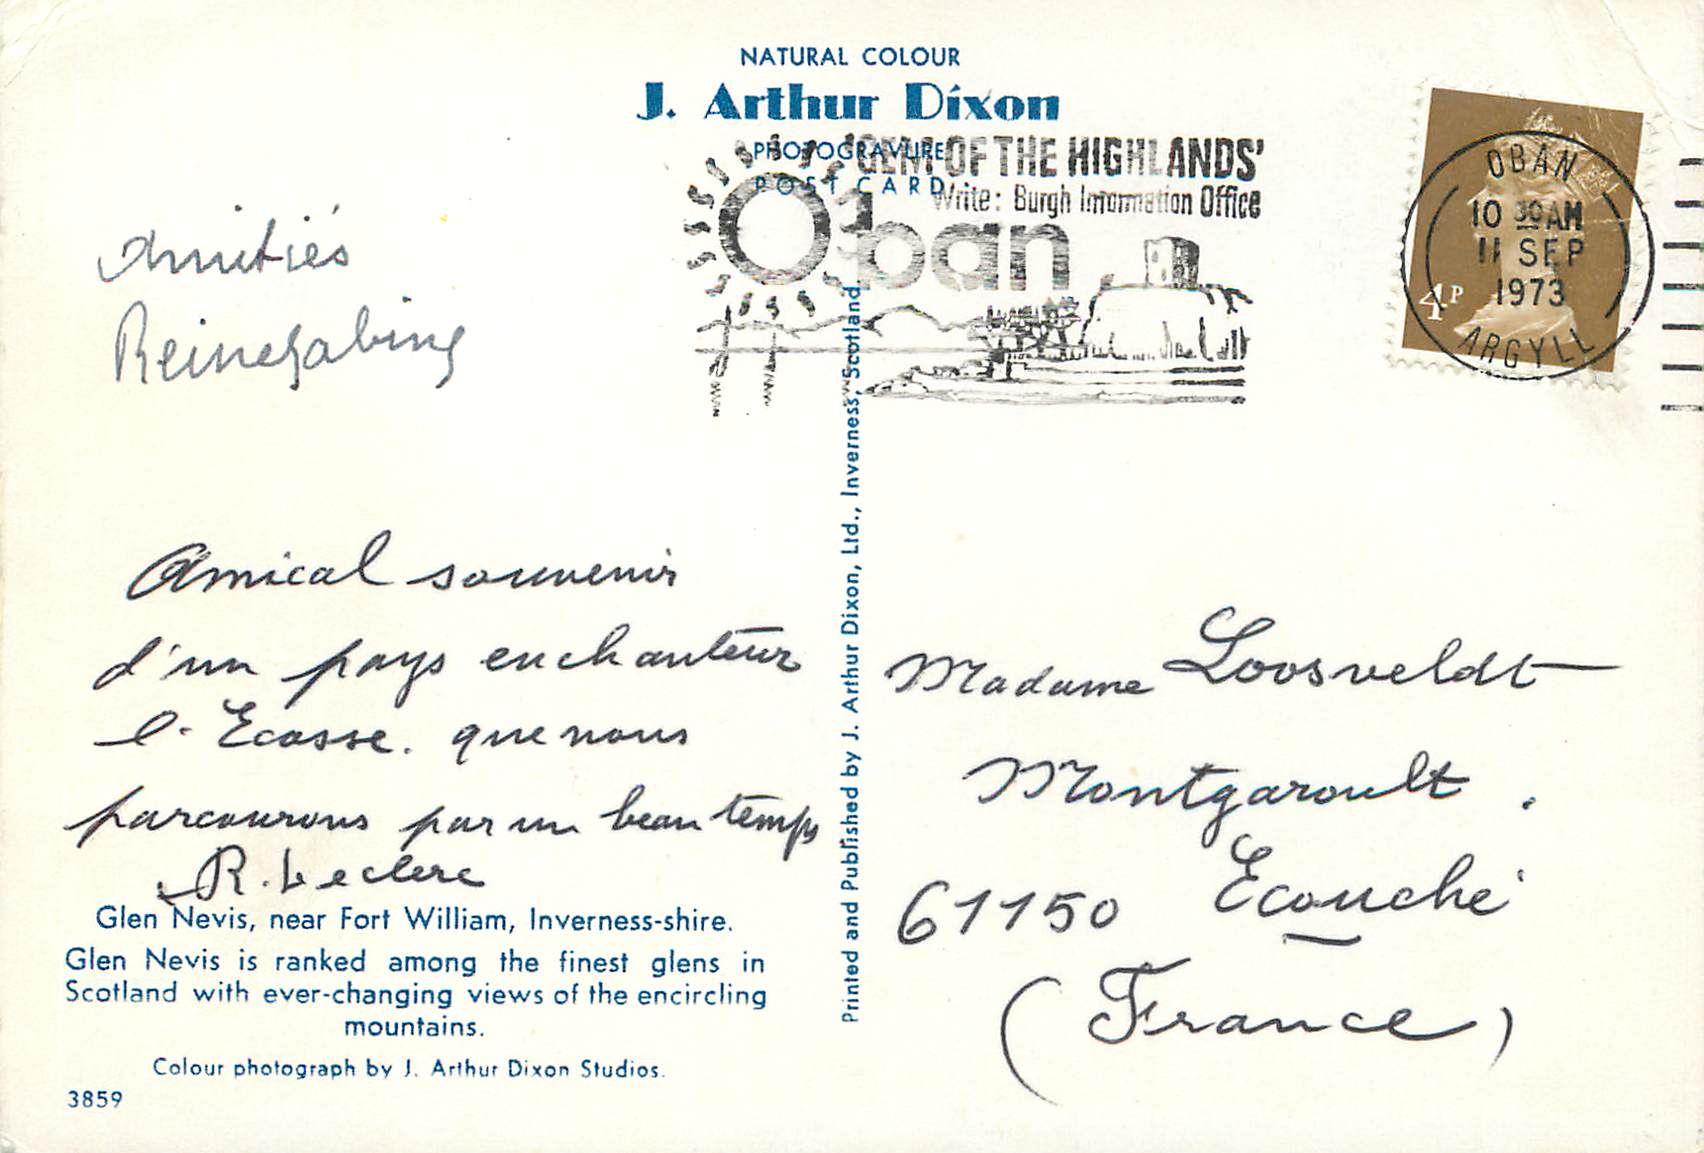 NATURAL COLOUR
J. Arthur Dixon
PHOTOGRAVURE
POST CARD
'GEM OF THE HIGHLANDS'
Write: Burgh Information Office
Oban
OBAN
10 30 AM
11 SEP
1973
ARGYLL
4P
Amitiés
Amical souvenir
d'un pays enchanteur
l'Ecosse. que nous
parcourons par un beau temps
R. Leclerc
Glen Nevis, near Fort William, Inverness-shire.
Glen Nevis is ranked among the finest glens in
Scotland with ever-changing views of the encircling
mountains.
Colour photograph by J. Arthur Dixon Studios.
3859
Printed and Published by J. Arthur Dixon, Ltd., Inverness, Scotland.
Madame Loosveldt
Montgaroult.
61150 Ecouché
(France)